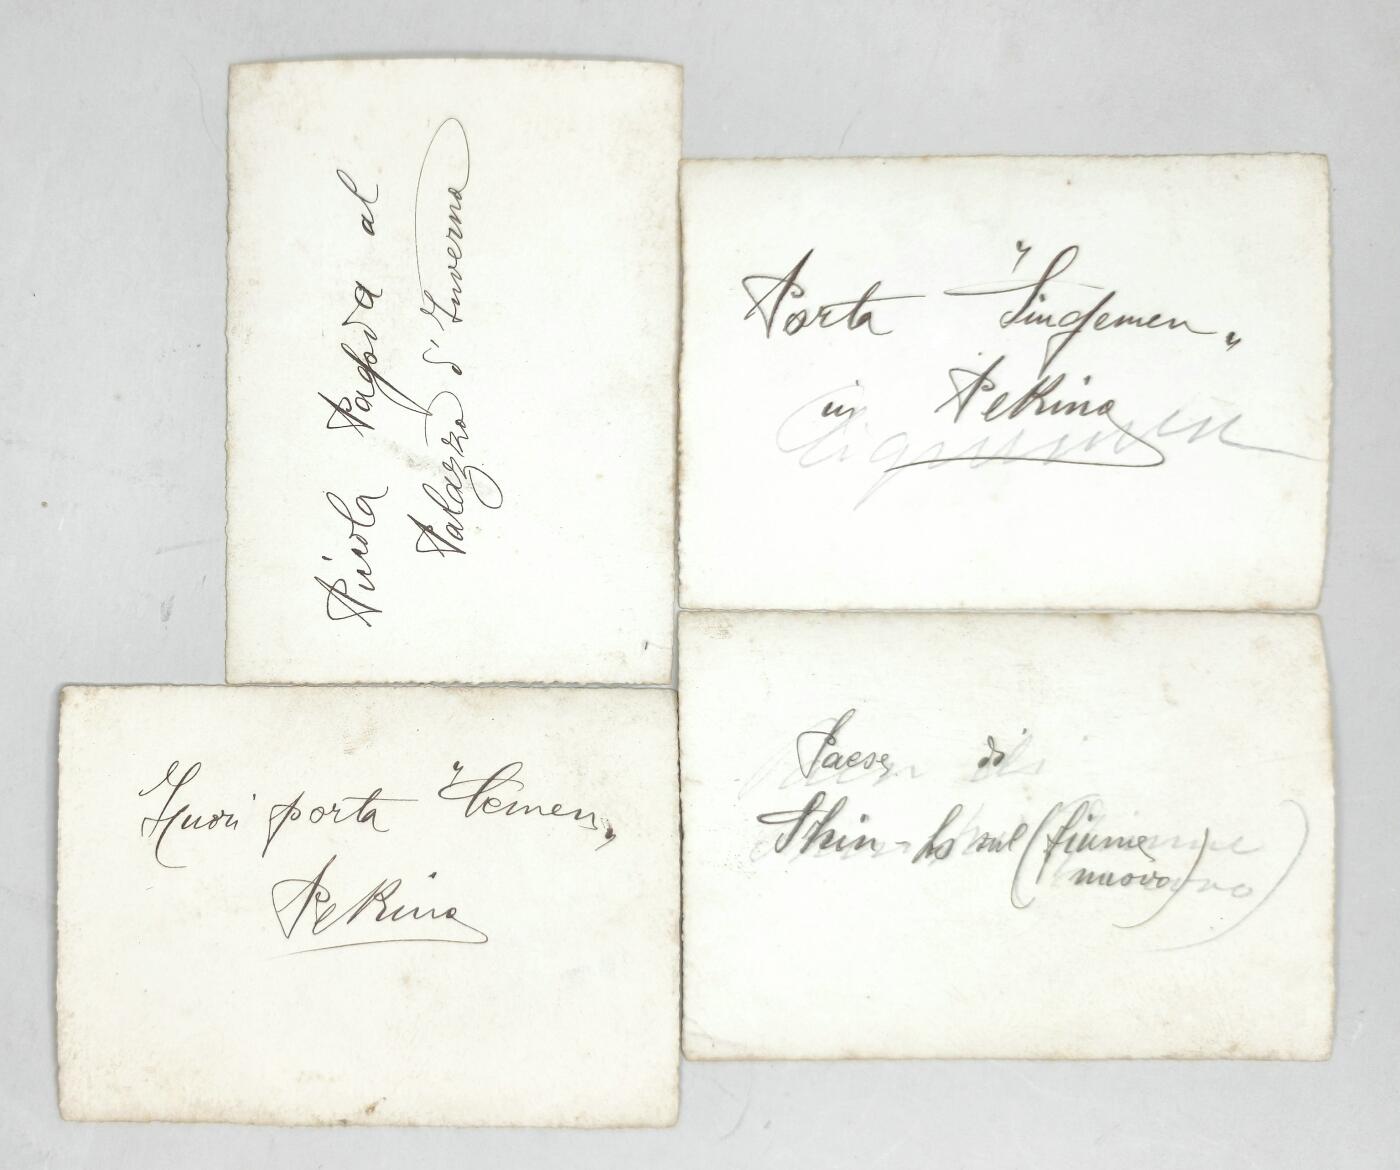 Piccola Pagoda al
Palazzo d'Inverno
Porta "Singemen"
in Pekino
Fuori porta "Hemen"
Pekino
Paese di
Shin-ho sul (fiume
nuovo)